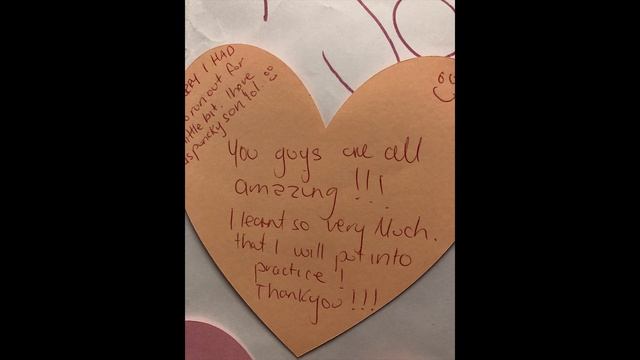 I HAD
run out for
little bit. I have
spunky son lol.
You guys are all
amazing !!!
I learnt so very Much.
that I will put into
practice !
Thankyou !!!